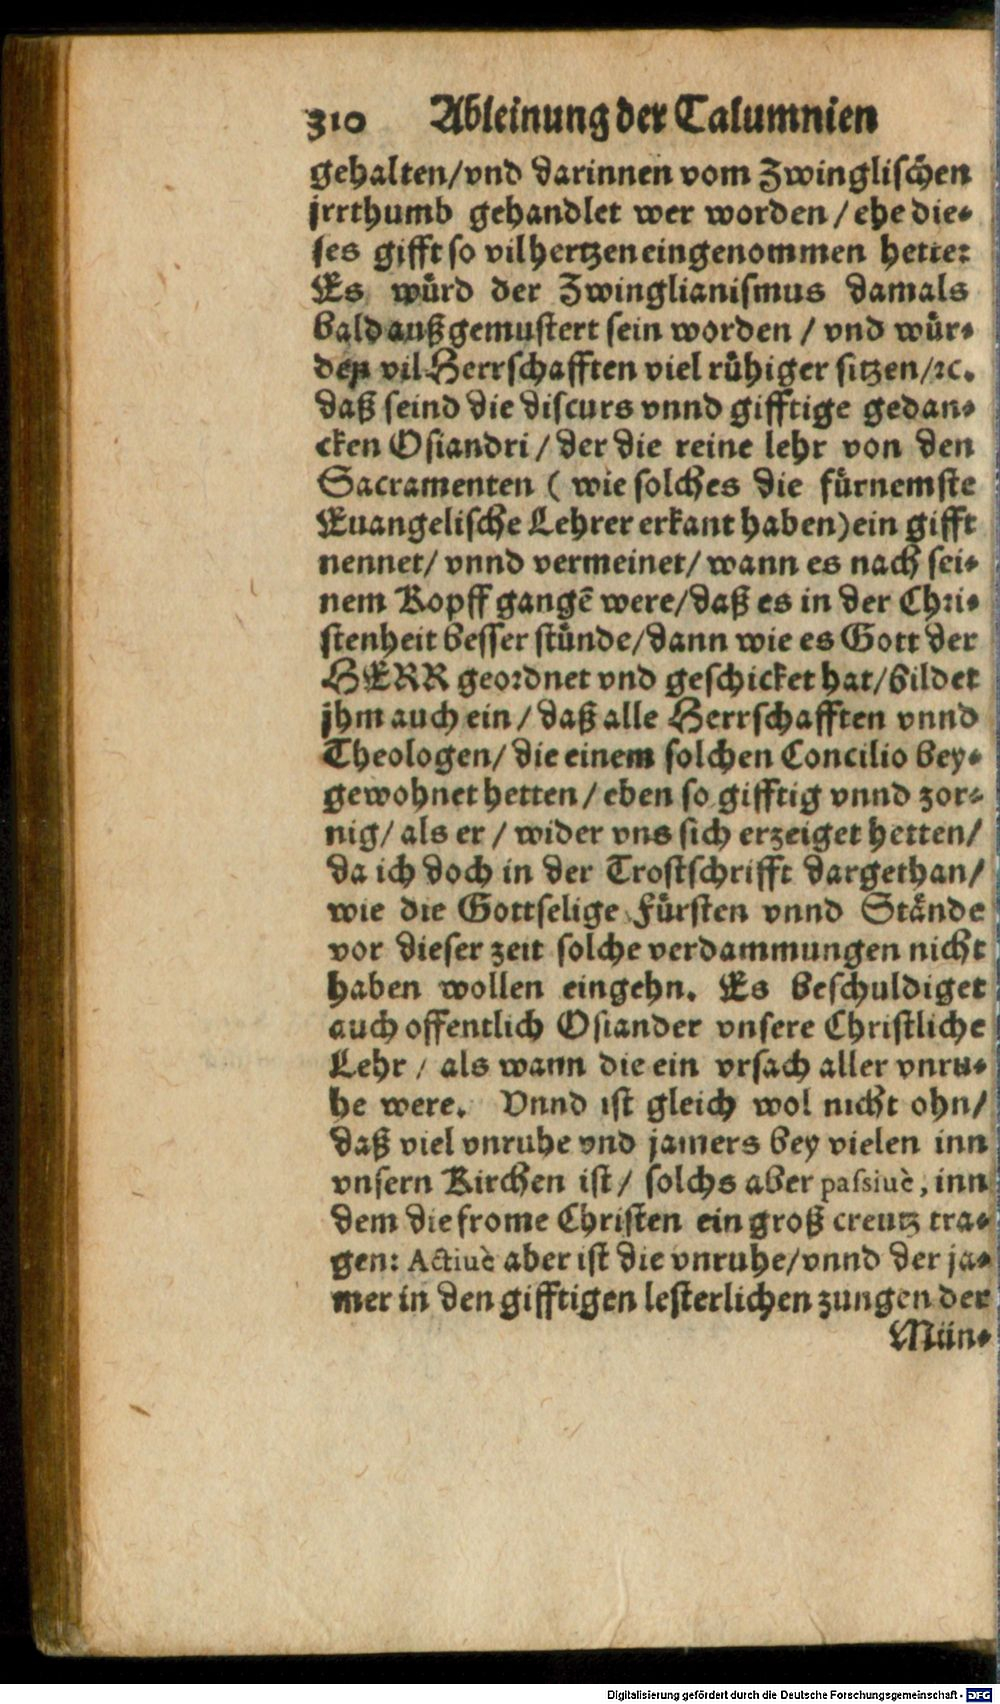 310 Ableinung der Calumnien
gehalten/vnd darinnen vom Zwinglischen
jrrthumb gehandlet wer worden/ehe die-
ses gifft so vil hertzen eingenommen hette:
Es würd der Zwinglianismus damals
bald außgemustert sein worden / vnd wür-
den vil Herrschafften viel rühiger sitzen/ꝛc.
daß seind die discurs vnnd gifftige gedan-
cken Osiandri/der die reine lehr von den
Sacramenten (wie solches die fürnemste
Euangelische Lehrer erkant haben) ein gifft
nennet/ vnnd vermeinet/wann es nach sei-
nem Kopff gangẽ were/daß es in der Chri-
stenheit besser stünde/dann wie es Gott der
HERR geordnet vnd geschicket hat/bildet
jhm auch ein/daß alle Herrschafften vnnd
Theologen/die einem solchen Concilio bey-
gewohnet hetten/eben so gifftig vnnd zor-
nig/als er / wider vns sich erzeiget hetten/
da ich doch in der Trostschrifft dargethan/
wie die Gottselige Fürsten vnnd Stände
vor dieser zeit solche verdammungen nicht
haben wollen eingehn. Es beschuldiget
auch offentlich Osiander vnsere Christliche
Lehr / als wann die ein vrsach aller vnru-
he were. Vnnd ist gleich wol nicht ohn/
daß viel vnruhe vnd jamers bey vielen inn
vnsern Kirchen ist/ solchs aber passiuè, inn
dem die frome Christen ein groß creutz tra-
gen: Actiuè aber ist die vnruhe/vnnd der ja-
mer in den gifftigen lesterlichen zungen der
Mün-
Digitalisierung gefördert durch die Deutsche Forschungsgemeinschaft - DFG